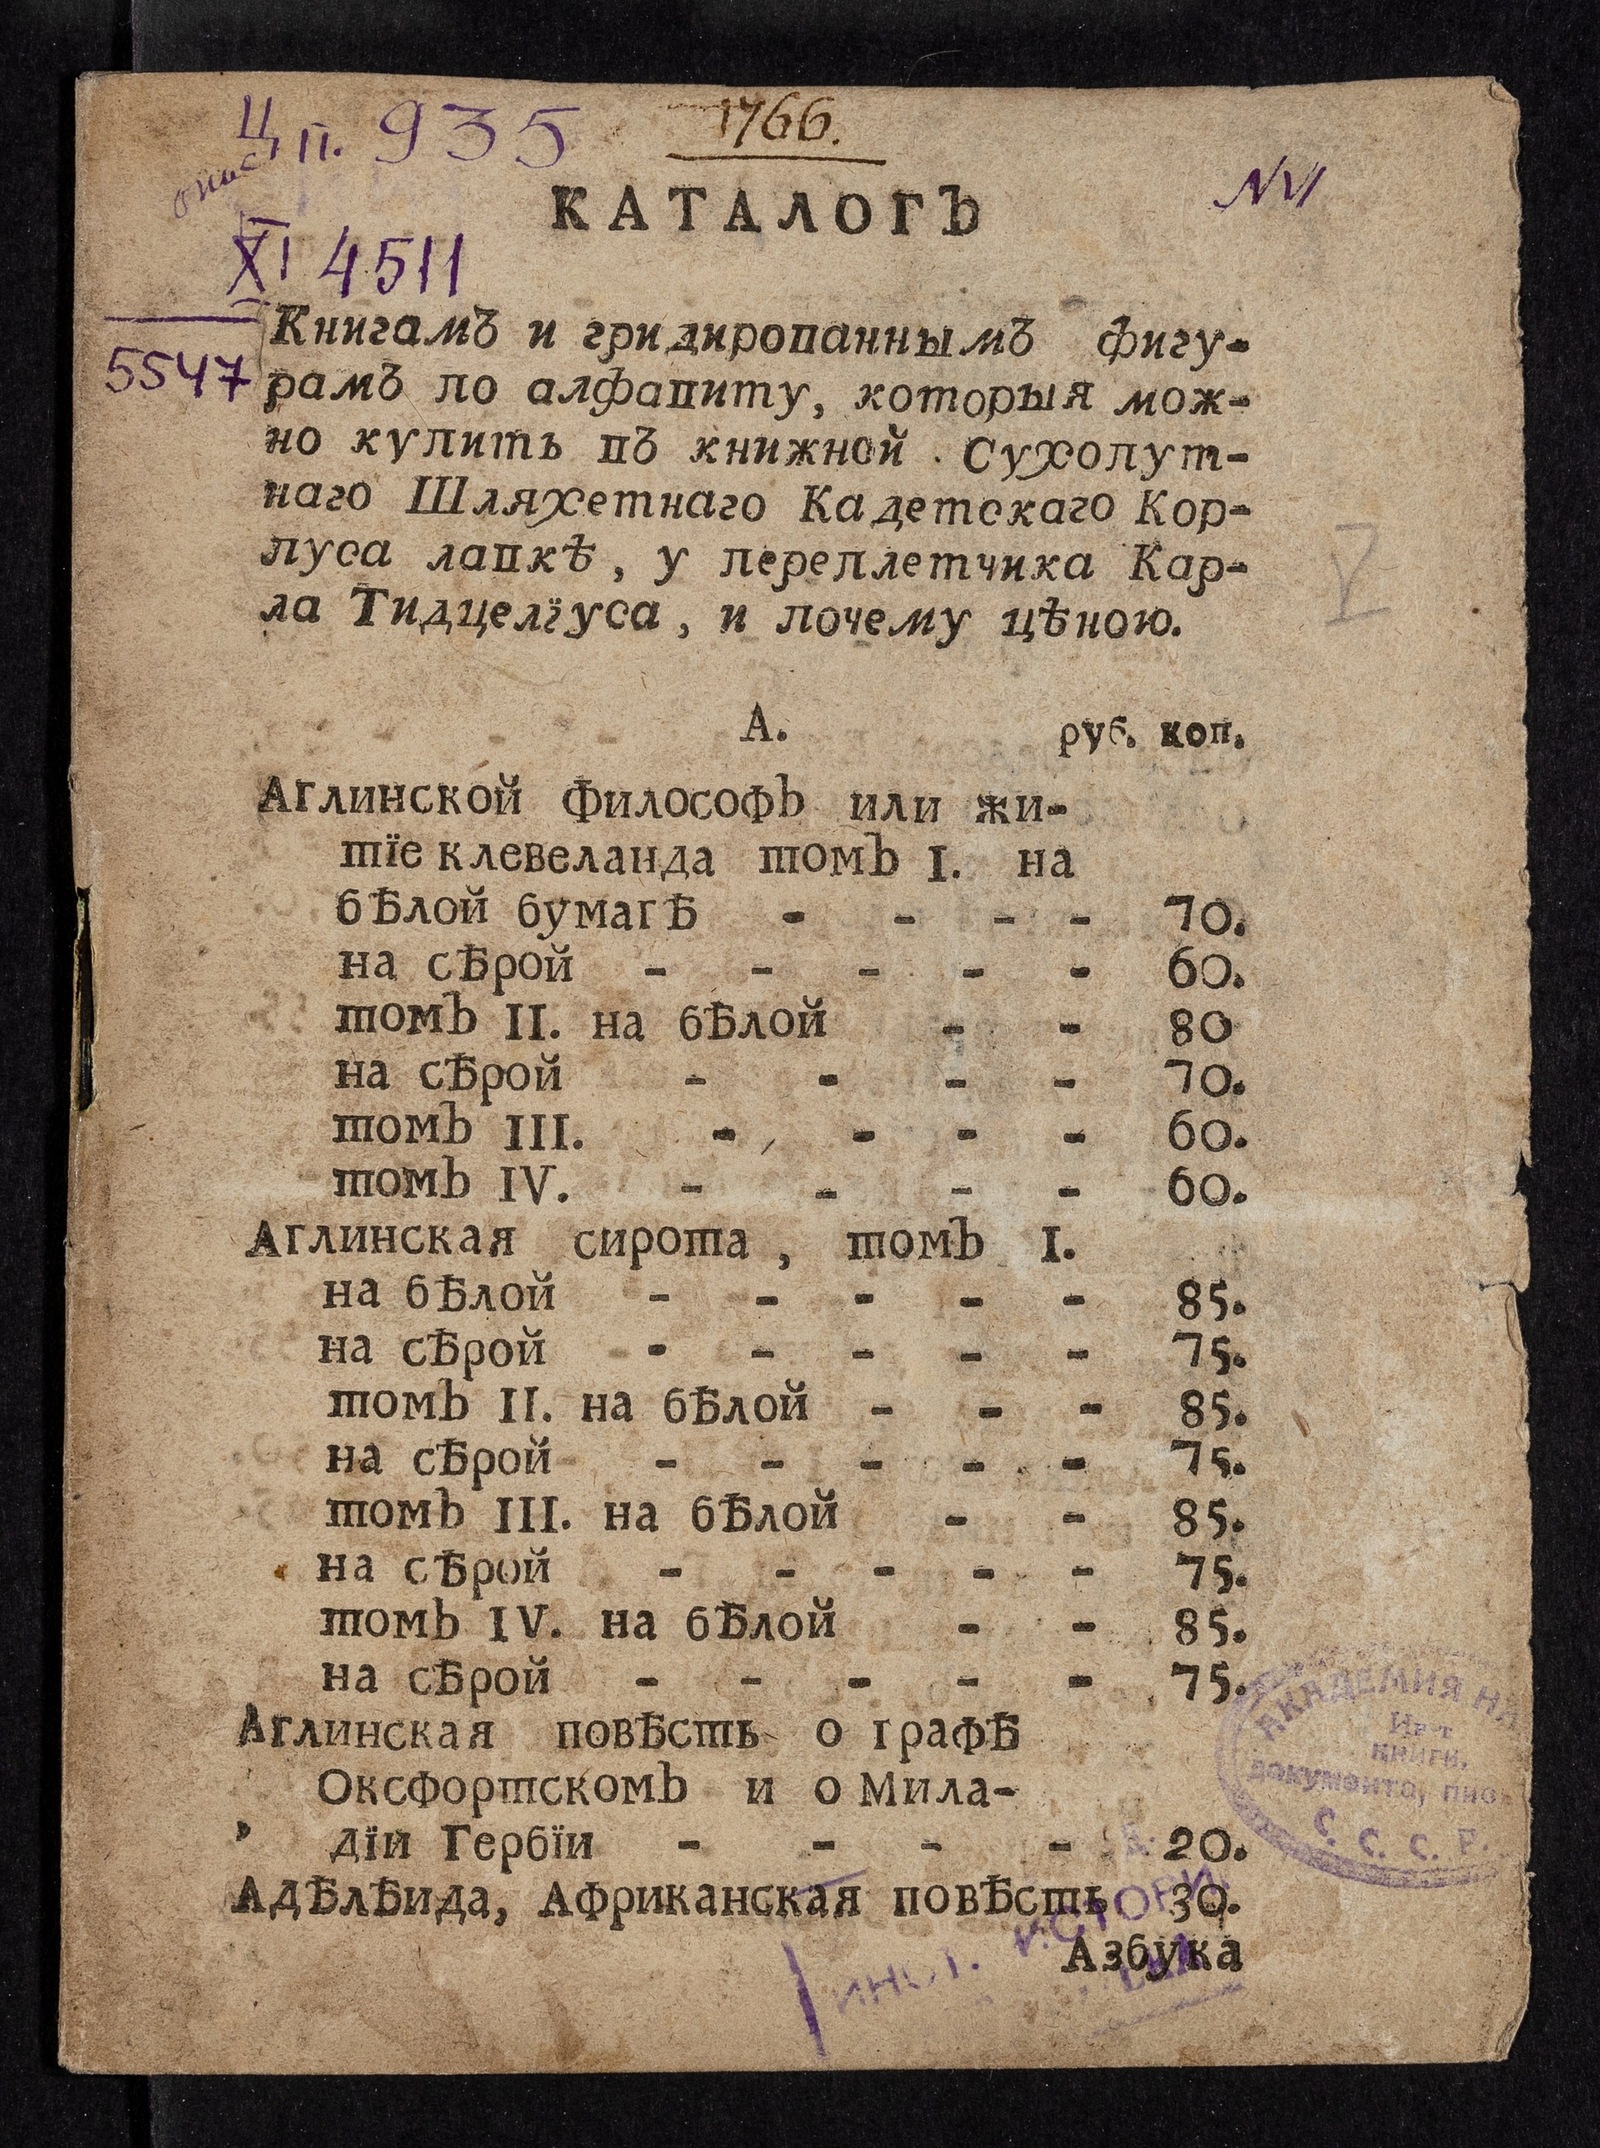 Ц п. 935
1766.
опис
КАТАЛОГЪ
NVI
XI 4511
5547
Книгамъ и гридированнымъ фигу-
рамъ по алфавиту, которыя мож-
но купить въ книжной Сухопут-
наго Шляхетнаго Кадетскаго Кор-
пуса лавкѣ, у переплетчика Кар-
ла Тидцелїуса, и почему цѣною.
V
А. руб. коп.
Аглинской Философъ или жи-
тїе клевеланда томъ I. на
бѣлой бумагѣ - - - - 70.
на сѣрой - - - - - 60.
томъ II. на бѣлой - - 80
на сѣрой - - - - 70.
томъ III. - - - - 60.
томъ IV. - - - - 60.
Аглинская сирота, томъ I.
на бѣлой - - - - - 85.
на сѣрой - - - - - 75.
томъ II. на бѣлой - - - 85.
на сѣрой - - - - - 75.
томъ III. на бѣлой - - 85.
на сѣрой - - - - - 75.
томъ IV. на бѣлой - - 85.
на сѣрой - - - - - 75.
Аглинская повѣсть о графѣ
Оксфортскомъ и о Мила-
дїи Гербїи - - - - 20.
Адѣлѣида, Африканская повѣсть 30.
Азбука
АКАДЕМИЯ НА
Ин-т
книги,
документа, пис
С. С. С. Р.
ИНСТ. ИСТОРИ